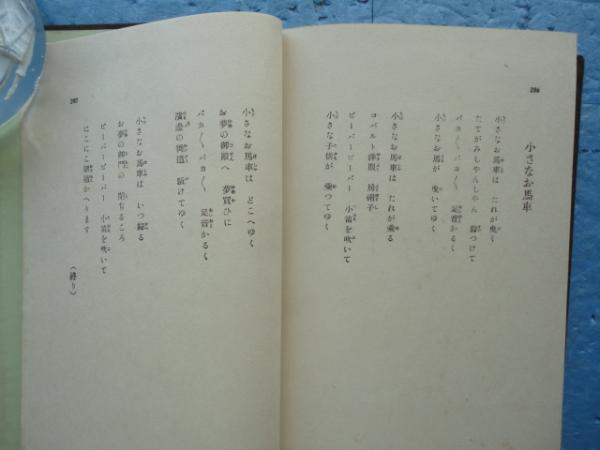 206
小さなお馬車
小さなお馬車は だれが曳く
たてがみしやんしやん 鈴つけて
パカ〱パカ〱 足音かるく
小さなお馬が 曳いてゆく
小さなお馬車は だれが乘る
コバルト洋服 房帽子
ピーパーピーパー 小笛を吹いて
小さな子供が 乘つてゆく
小さなお馬車は どこへゆく
お夢の御殿へ 夢買ひに
パカ〱パカ〱 足音かるく
駈けてゆく
小さなお馬車は いつ歸る
お夢の御門の 閉ぢるころ
ピーパーピーパー 小笛を吹いて
にこにこ かへります
(終り)
207